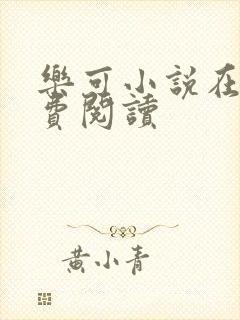 樂可小說在
費閱讀
黃小青